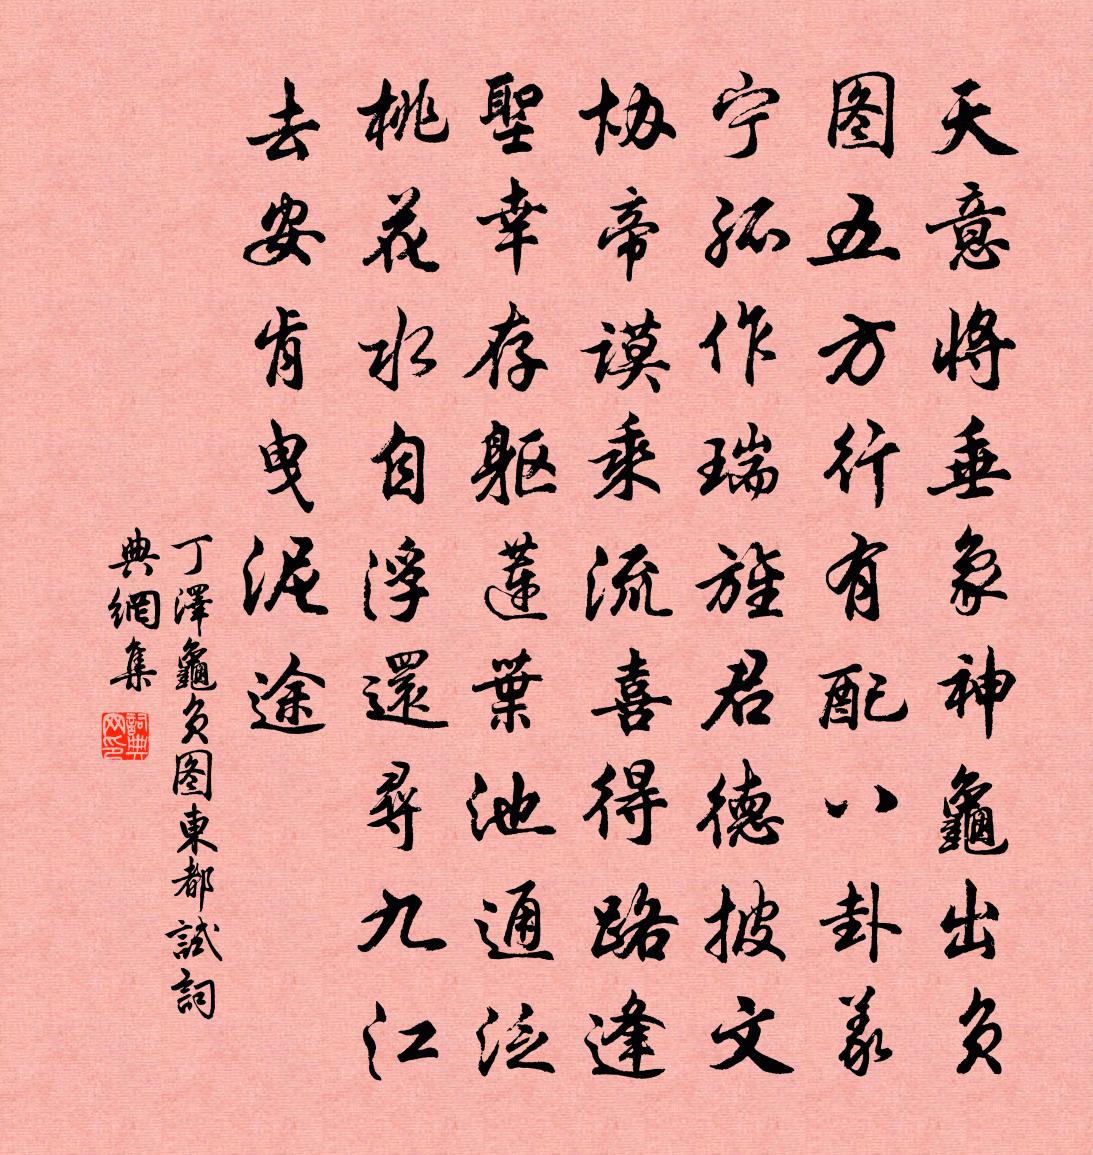 天意将垂象神龜出负
图五方行有配八卦義
宁孤作瑞旌君德披文
协帝谟乘流喜得路逢
聖幸存躯蓮葉池通泛
桃花水自浮還尋九江
去安肯曳泥途
丁澤龜负图東都試詞
典網集
詞典网印